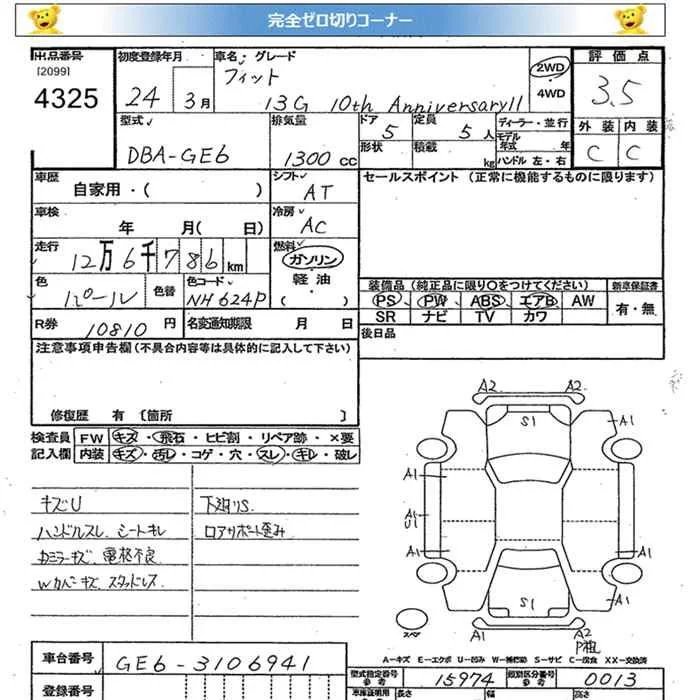 完全ゼロ切りコーナー
出品番号 初度登録年月 車名 グレード 評価点
[2099] フィット 2WD
4325 24 3月 13G 10th AnniversaryII 4WD 3.5
型式 排気量 ドア 定員 ディーラー・並行 外装 内装
5 5人 モデル年式 年
DBA-GE6 1300cc 形状 積載 kg ハンドル 左・右 C C
車歴 シフト セールスポイント(正常に機能するものに限ります)
自家用・( ) AT
車検 冷房
年 月( 日) AC
走行 燃料
12万6千786km ガソリン
色 色替 色コード 軽油
パール NH624P ( )
装備品(純正品に限り○をつけてください) 新車保証書
PS PW ABS エアB AW 有・無
SR ナビ TV カワ
R券 10810円 名変通知期限 月 日 後日品
注意事項申告欄(不具合内容等は具体的に記入して下さい)
修復歴 有 〔箇所 〕
検査員 FW キズ・飛石・ヒビ割・リペア跡・×要
記入欄 内装 キズ・汚レ・コゲ・穴・スレ・キレ・破レ
キズU 下廻りS
ハンドルスレ シートキレ ロアサポート歪み
カミラーキズ 電格不良
Wカバーキズ スタッドレス
A2 A2
S1
A1 A1
A1
A1
U1
A1 A1
S1
スペア A1 A2
P粗
A-キズ E-エクボ U-凹み W-補修跡 S-サビ C-腐食 XX-交換済
車台番号 GE6-3106941 型式指定番号 参考 15974 類別区分番号 参考 0013
登録番号 車庫証明用 長さ 幅 高さ